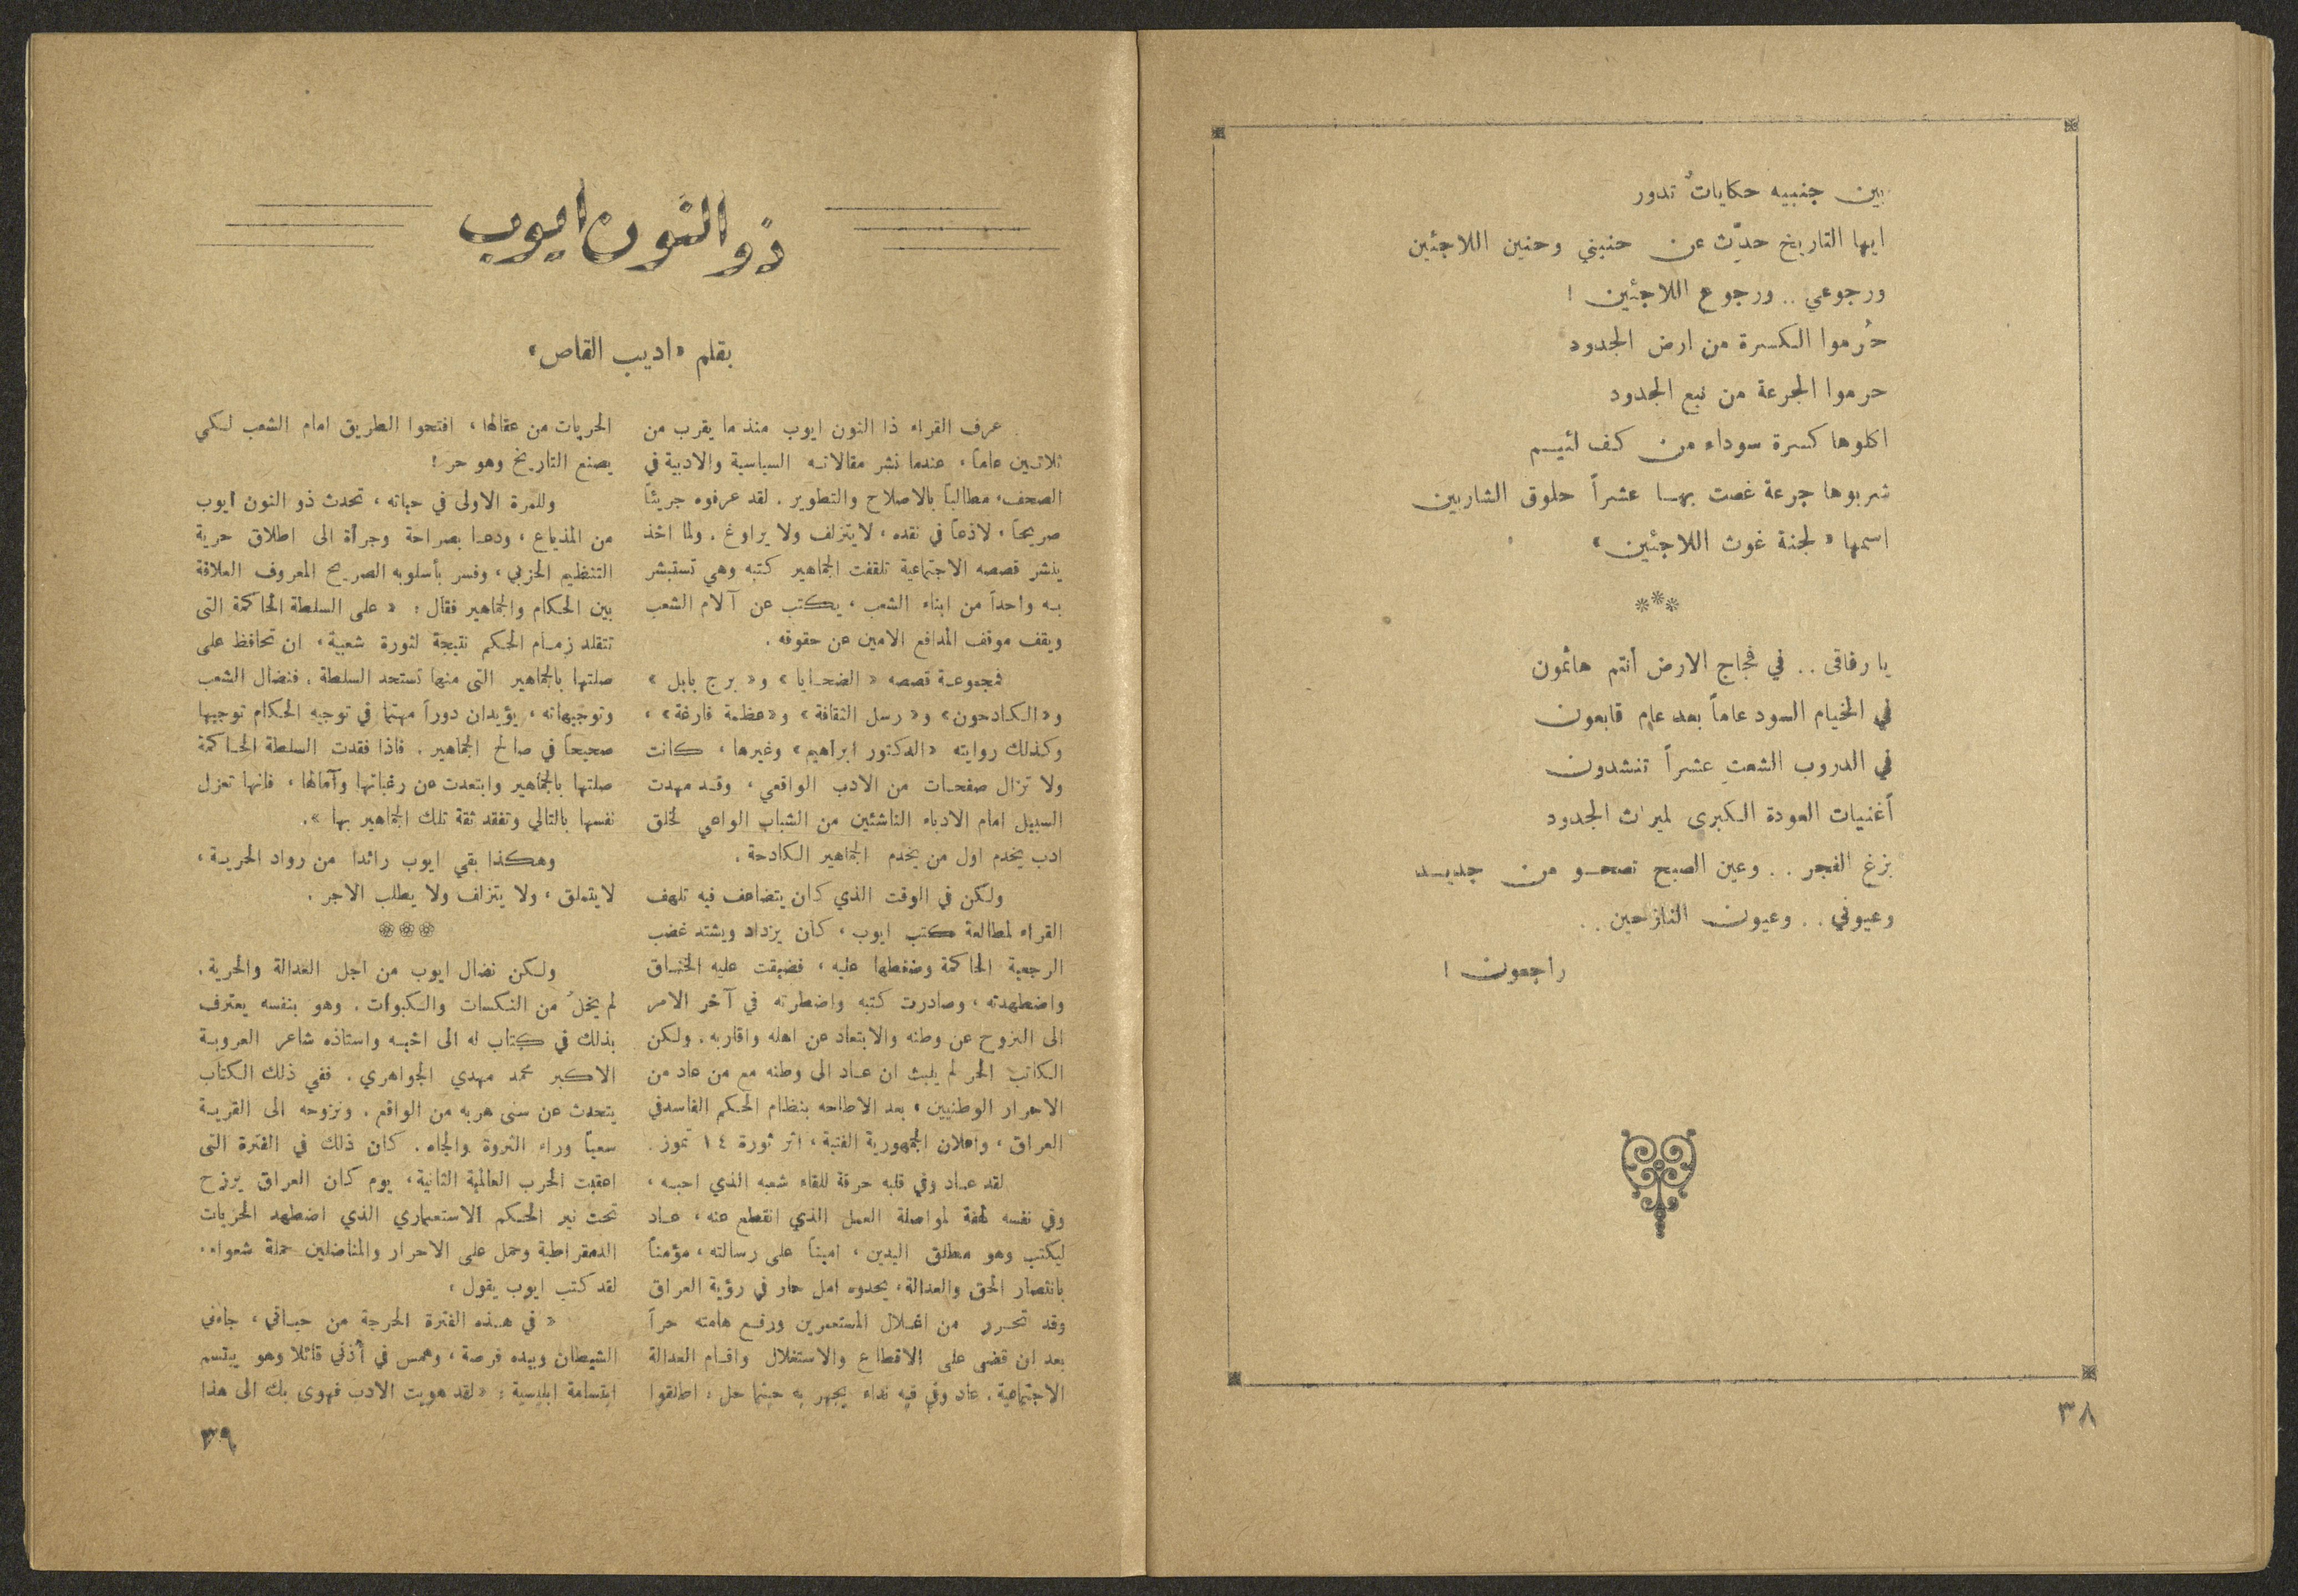 بين جنبيه حكاياتٌ تدور
ايها التاريخ حدِّث عن حنيني وحنين اللاجئين
ورجوعي .. ورجوع اللاجئين !
حُرموا الكسرة من ارض الجدود
حرموا الجرعة من نبع الجدود
اكلوها كسرة سوداء من كف لئيم
شربوها جرعة غصت بها عشراً حلوق الشاربين
اسمها « لجنة غوث اللاجئين »
***
يا رفاقى .. في فجاج الارض أنتم هائمون
في الخيام السود عاماً بعد عام قابعون
في الدروب الشعثِ عشراً تنشدون
أغنيات العودة الكبرى لميراث الجدود
بزغ الفجر .. وعين الصبح تصحو من جديد
وعيوني .. وعيون النازحين ..
راجعون !
٣٨
ذو النون ايوب
بقلم «اديب القاص»
عرف القراء ذا النون ايوب منذ ما يقرب من
ثلاثين عاماً، عندما نشر مقالاته السياسية والادبية في
الصحف، مطالباً بالاصلاح والتطوير . لقد عرفوه جريئاً
صريحاً، لاذعاً في نقده، لايتزلف ولا يراوغ . ولما اخذ
ينشر قصصه الاجتماعية تلقفت الجماهير كتبه وهي تستبشر
به واحداً من ابناء الشعب ، يكتب عن آلام الشعب
ويقف موقف المدافع الامين عن حقوقه .
فمجموعة قصصه « الضحايا » و« برج بابل »
و«الكادحون» و« رسل الثقافة » و«عظمة فارغة» ،
وكذلك روايته «الدكتور ابراهيم» وغيرها ، كانت
ولا تزال صفحات من الادب الواقعي ، وقد مهدت
السبيل امام الادباء الناشئين من الشباب الواعي لخلق
ادب يخدم اول من يخدم الجماهير الكادحة .
ولكن في الوقت الذي كان يتضاعف فيه تلهف
القراء لمطالعة كتب ايوب ، كان يزداد ويشتد غضب
الرجعية الحاكمة وضغطها عليه ، فضيقت عليه الخناق
واضطهدته ، وصادرت كتبه واضطرته في آخر الامر
الى النزوح عن وطنه والابتعاد عن اهله واقاربه . ولكن
الكاتب الحر لم يلبث ان عاد الى وطنه مع من عاد من
الاحرار الوطنيين ، بعد الاطاحه بنظام الحكم الفاسد في
العراق ، واعلان الجمهورية الفتية ، اثر ثورة ١٤ تموز .
لقد عاد وفي قلبه حرقة للقاء شعبه الذي احبه ،
وفي نفسه لهفة لمواصلة العمل الذي انقطع عنه ، عاد
ليكتب وهو مطلق اليدين ، امينا على رسالته ، مؤمناً
بانتصار الحق والعدالة، يحدوه امل حار في رؤية العراق
وقد تحرر من اغلال المستعمرين ورفع هامته حراً
بعد ان قضى على الاقطاع والاستغلال واقام العدالة
الاجتماعية . عاد وفي فيه نداء يجهر به حيثما حل : اطلقوا
الحريات من عقالها ، افتحوا الطريق امام الشعب لكي
يصنع التاريخ وهو حر !
وللمرة الاولى في حياته ، تحدث ذو النون ايوب
من المذياع ، ودعا بصراحة وجرأة الى اطلاق حرية
التنظيم الحزبي ، وفسر بأسلوبه الصريح المعروف العلاقة
بين الحكام والجماهير فقال : « على السلطة الحاكمة التى
تتقلد زمام الحكم نتيجة لثورة شعبية ، ان تحافظ على
صلتها بالجماهير التى منها تستمد السلطة . فنضال الشعب
وتوجيهاته ، يؤيدان دوراً مهما في توجيه الحكام توجيها
صحيحاً في صالح الجماهير . فاذا فقدت السلطة الحاكمة
صلتها بالجماهير وابتعدت عن رغباتها وآمالها ، فانها تعزل
نفسها بالتالي وتفقد ثقة تلك الجماهير بها » .
وهكذا بقي ايوب رائدا من رواد الحرية ،
لايتملق ، ولا يتزلف ولا يطلب الاجر .
***
ولكن نضال ايوب من اجل العدالة والحرية ،
لم يخلُ من النكسات والكبوات . وهو بنفسه يعترف
بذلك في كتاب له الى اخيه واستاذه شاعر العروبة
الاكبر محمد مهدي الجواهري . ففي ذلك الكتاب
يتحدث عن سنى هربه من الواقع . ونزوحه الى القرية
سعياً وراء الثروة والجاه . كان ذلك في الفترة التى
اعقبت الحرب العالمية الثانية ، يوم كان العراق يرزح
تحت نير الحكم الاستعماري الذي اضطهد الحريات
الدمقراطية وحمل على الاحرار والمناضلين حملة شعواء .
لقد كتب ايوب يقول ،
« في هذه الفترة الحرجة من حياتي ، جاءني
الشيطان وبيده فرصة ، وهمس في أذني قائلا وهو يبتسم
ابتسامة ابليسية : «لقد هويت الادب فهوى بك الى هذا
٣٩